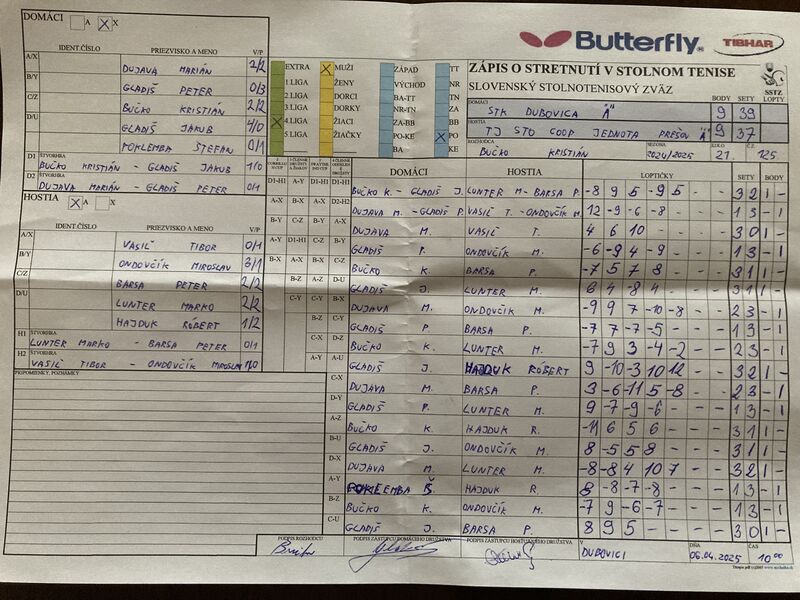 DOMÁCI A X
Butterfly TIBHAR
IDENT.ČÍSLO PRIEZVISKO A MENO V/P
A/X DUJAVA MARIÁN 2/2
B/Y GLADIŠ PETER 0/3
C/Z BUČKO KRISTIÁN 2/2
D/U GLADIŠ JAKUB 4/0
POKLEMBA ŠTEFAN 0/1
D1 ŠTVORHRA BUČKO KRISTIÁN - GLADIŠ JAKUB 1/0
D2 ŠTVORHRA DUJAVA MARIÁN - GLADIŠ PETER 0/1
EXTRA MUŽI ZÁPAD TT
1.LIGA ŽENY VÝCHOD NR
2.LIGA DORCI BA-TT TN
3.LIGA DORKY NR-TN ZA
4.LIGA ŽIACI ZA-BB BB
5 LIGA ŽIAČKY PO-KE PO
BA KE
ZÁPIS O STRETNUTÍ V STOLNOM TENISE
SLOVENSKÝ STOLNOTENISOVÝ ZVÄZ SSTZ
DOMÁCI BODY SETY LOPTY
STK DUBOVICA "A" 9 39
HOSTIA
TJ STO COOP JEDNOTA PREŠOV "A" 9 37
ROZHODCA SEZÓNA KOLO Č.Z.
BUČKO KRISTIÁN 2024/2025 21 125
HOSTIA A X
IDENT.ČÍSLO PRIEZVISKO A MENO V/P
A/X VASIĽ TIBOR 0/1
B/Y ONDOVČÍK MIROSLAV 3/1
C/Z BARSA PETER 2/2
D/U LUNTER MARKO 2/2
HAJDUK RÓBERT 1/2
H1 ŠTVORHRA LUNTER MARKO - BARSA PETER 0/1
H2 ŠTVORHRA VASIĽ TIBOR - ONDOVČÍK MIROSLAV 1/0
PRIPOMIENKY, POZNÁMKY
DOMÁCI HOSTIA LOPTIČKY SETY BODY
BUČKO K. - GLADIŠ J. LUNTER M - BARSA P. -8 9 5 -9 5 3 2 1 -
DUJAVA M. - GLADIŠ P. VASIĽ T. - ONDOVČÍK M. 12 -9 -6 -8 - 1 3 - 1
DUJAVA M. VASIĽ T. 4 6 10 - - 3 0 1 -
GLADIŠ P. ONDOVČÍK M. -6 -9 4 -9 - 1 3 - 1
BUČKO K. BARSA P. -7 5 7 8 - 3 1 1 -
GLADIŠ J. LUNTER M. 6 4 -8 4 - 3 1 1 -
DUJAVA M. ONDOVČÍK M. -9 9 7 -10 -8 2 3 - 1
GLADIŠ P BARSA P. -7 7 -7 -5 - 1 3 - 1
BUČKO K. LUNTER M. -7 9 3 -4 -2 2 3 - 1
GLADIŠ J. HAJDUK RÓBERT 9 -10 -3 10 12 3 2 1 -
DUJAVA M. BARSA P. 3 -6 -11 5 -8 2 3 - 1
GLADIŠ P. LUNTER M. 9 -7 -9 -6 - 1 3 - 1
BUČKO K. HAJDUK R. -11 6 5 6 - 3 1 1 -
GLADIŠ J. ONDOVČÍK M. 8 -5 5 8 - 3 1 1 -
DUJAVA M. LUNTER M. -8 -8 4 10 7 3 2 1 -
POKLEMBA Š. HAJDUK R. 8 -8 -7 -8 - 1 3 - 1
BUČKO K. ONDOVČÍK M. -7 9 -6 -7 - 1 3 - 1
GLADIŠ J. BARSA P. 8 9 5 - - 3 0 1 -
PODPIS ROZHODCU PODPIS ZÁSTUPCU DOMÁCEHO DRUŽSTVA PODPIS ZÁSTUPCU HOSŤUJÚCEHO DRUŽSTVA V DŇA ČAS
DUBOVICI 06.04.2025 10:00